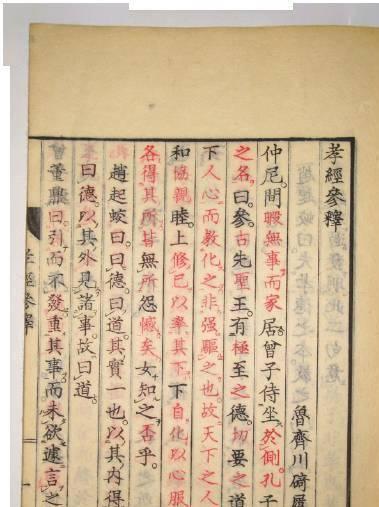 孝經參釋
魯齊川碕厚
仲尼間暇無事而家居曾子侍坐於側孔子
之名曰參古先聖王有極至之德切要之道
下人心而教化之非强驅之也故天下之人
和協親睦上修己以率其下下自化以心服
各得其所皆無所怨憾矣女知之否乎
趙起蛟曰曰德曰道其實一也以其内得
曰德以其外見諸事故曰道
董鼎曰引而不發重其事而未欲遽言之
孝經參釋
一